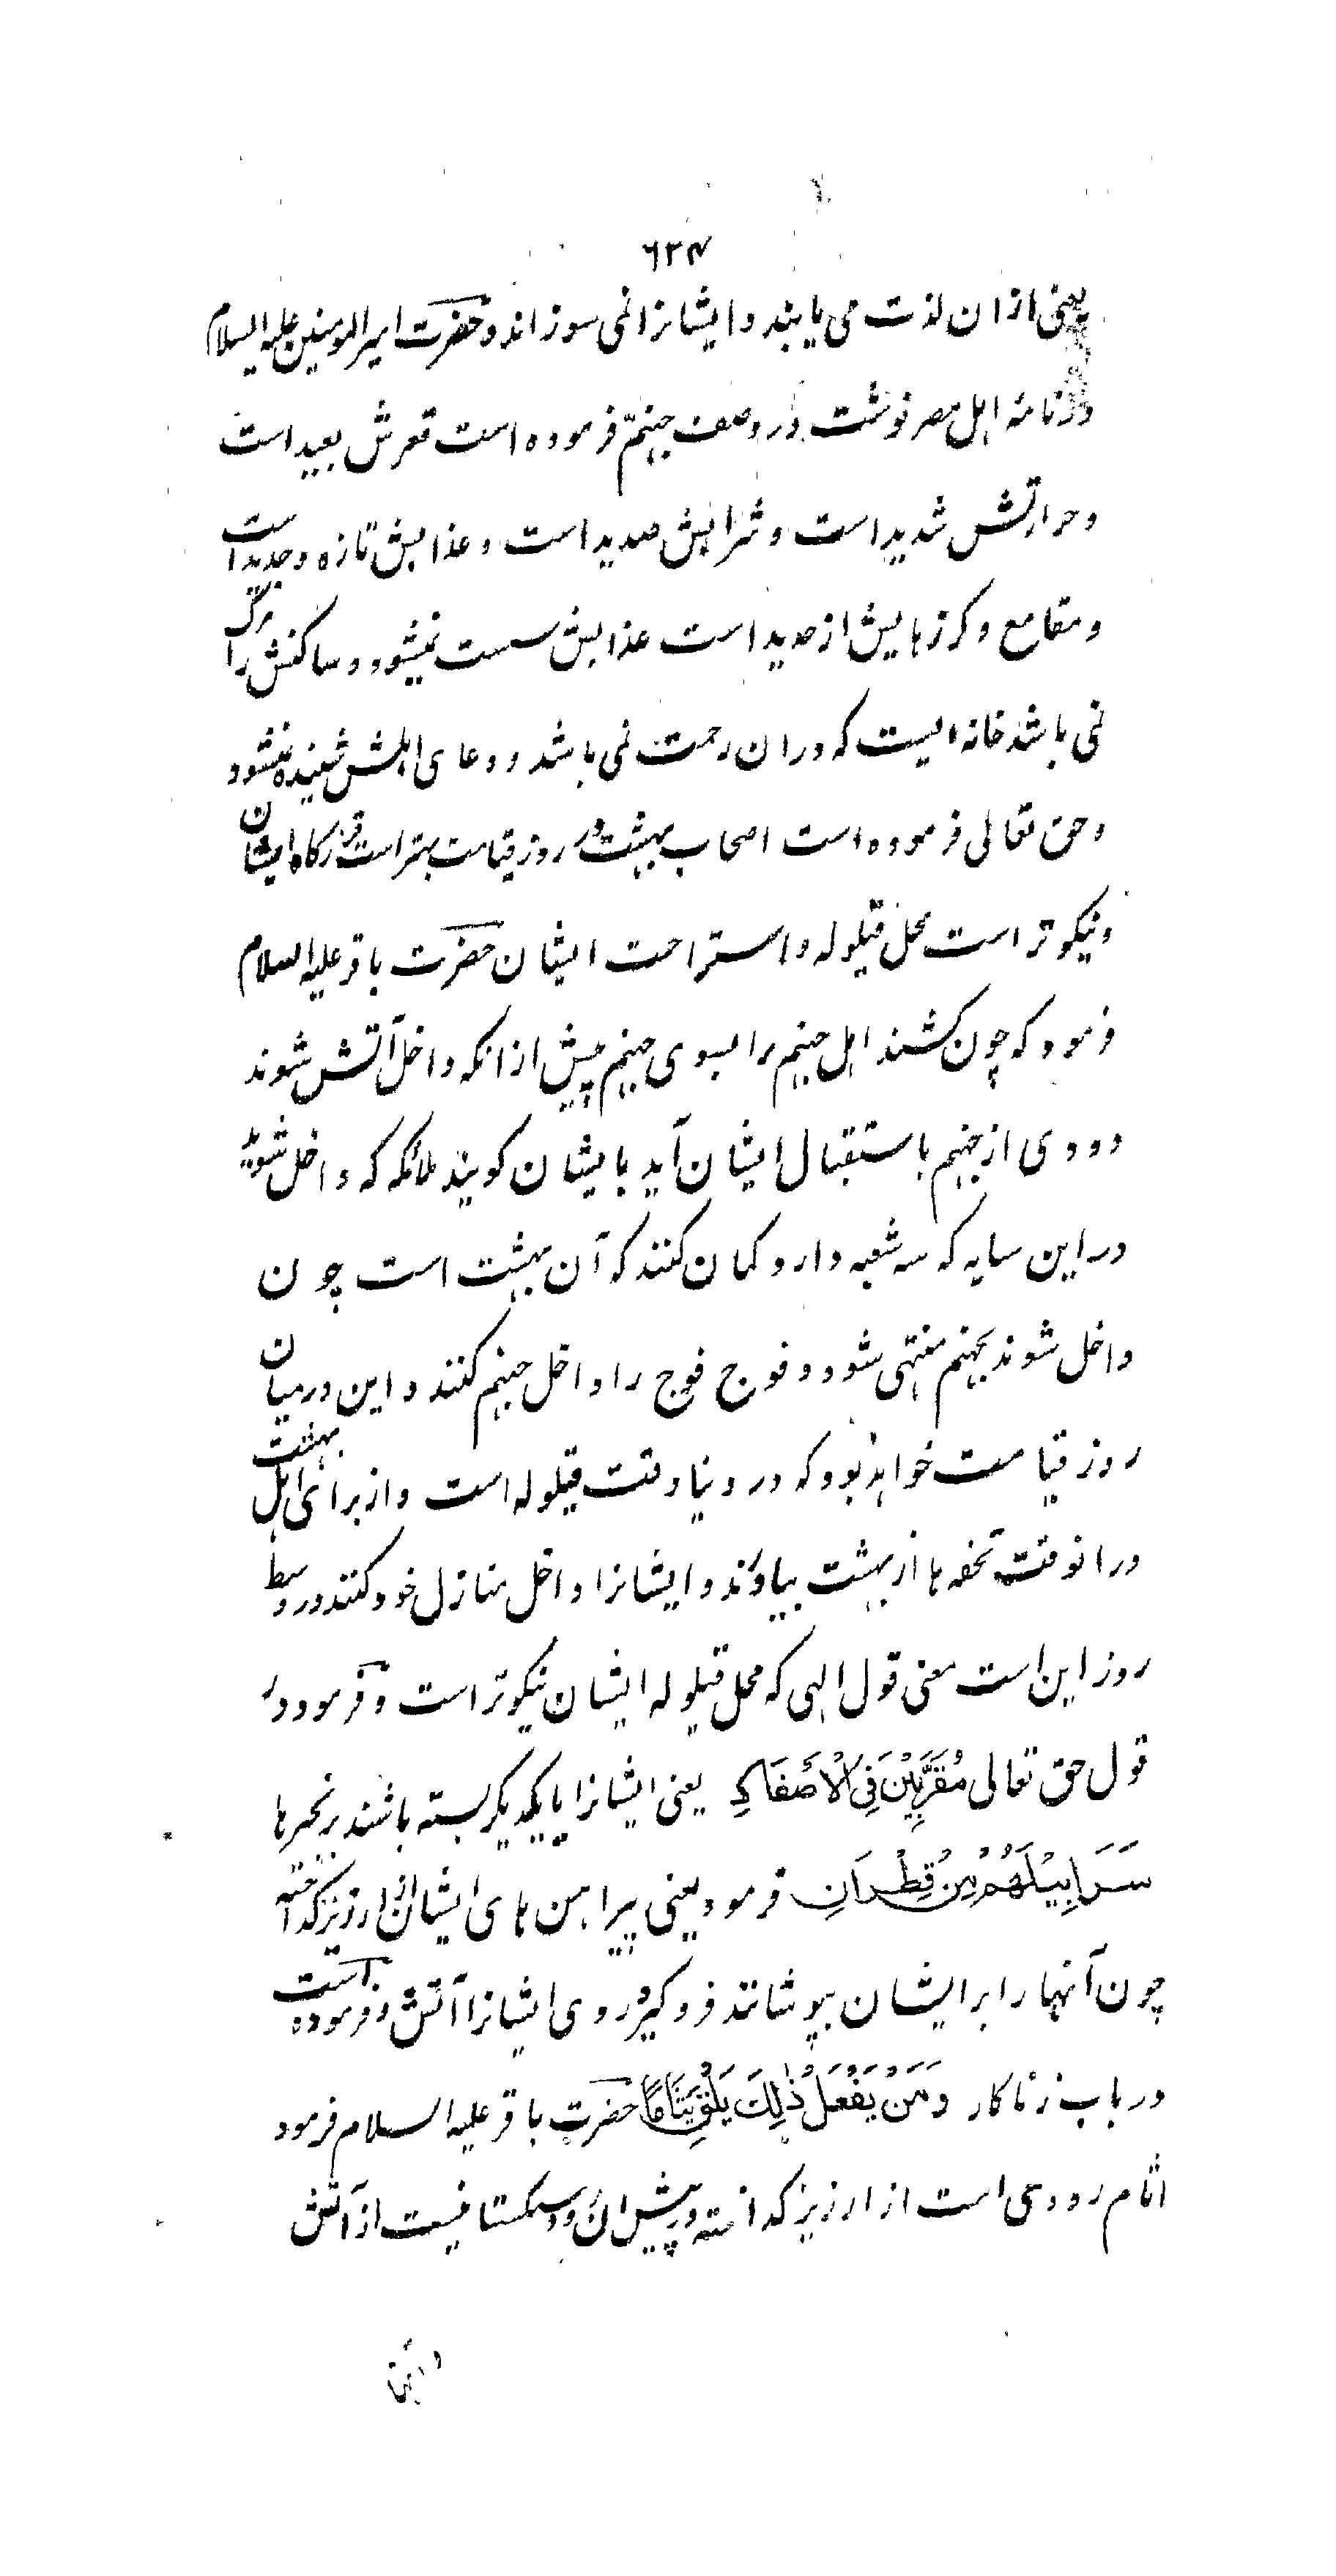 ۶۲۴
یعنی ازان لذت می یابند و ایشانرا نمی سوزاند و حضرت امیرالمومنین علیه السلام
در نامهٔ اهل مصر نوشت در وصف جهنّم فرموده است قعرش بعید است
و حرارتش شدید است و شرابش صدید است و عذابش تازه و جدید است
و مقامع و کرزهایش از حدید است عذابش سست نمیشود و ساکنش را مرک
نمی باشد خانه ایست که دران رحمت نمی باشد و دعای اهلش شنیده نمیشود
و حق تعالی فرموده است اصحاب بهشت در روز قیامت بهتر است قرارکاه ایشان
و نیکوتر است محل قیلوله و استراحت ایشان حضرت باقر علیه السلام
فرمود که چون کشند اهل جهنم را بسوی جهنم پیش ازانکه داخل آتش شوند
دودی از جهنم باستقبال ایشان آید بایشان کویند ملائکه که داخل شوید
در این سایه که سه شعبه دارد کمان کنند که آن بهشت است چون
داخل شوند بجهنم منتهی شود و فوج فوج را داخل جهنم کنند و این درمیان
روز قیامت خواهد بود که در دنیا وقت قیلوله است و از برای اهل بهشت
درانوقت تحفه ها از بهشت بیاورند و ایشانرا داخل منازل خود کنند در وسط
روز این است معنی قول الهی که محل قیلوله ایشان نیکوتر است و فرمود در
قول حق تعالی مُقَرَّنِیْنَ فِی الْاَصْفَادِ یعنی ایشانرا بایکدیکر بسته باشند بزنجیرها
سَرَابِیْلُهُمْ مِنْ قَطِرَانٍ فرمود یعنی پیراهن های ایشان از ارزیز کداخته است
چون آنها را بر ایشان بپوشانند فرو کیرد روی ایشانرا آتش و فرموده است
در باب زناکار وَمَنْ یَفْعَلْ ذٰلِکَ یَلْقَ اَثَامًا حضرت باقر علیه السلام فرمود
اثام رودی است از ارزیز کداخته و در پیش ان رود سنکستانیست از آتش